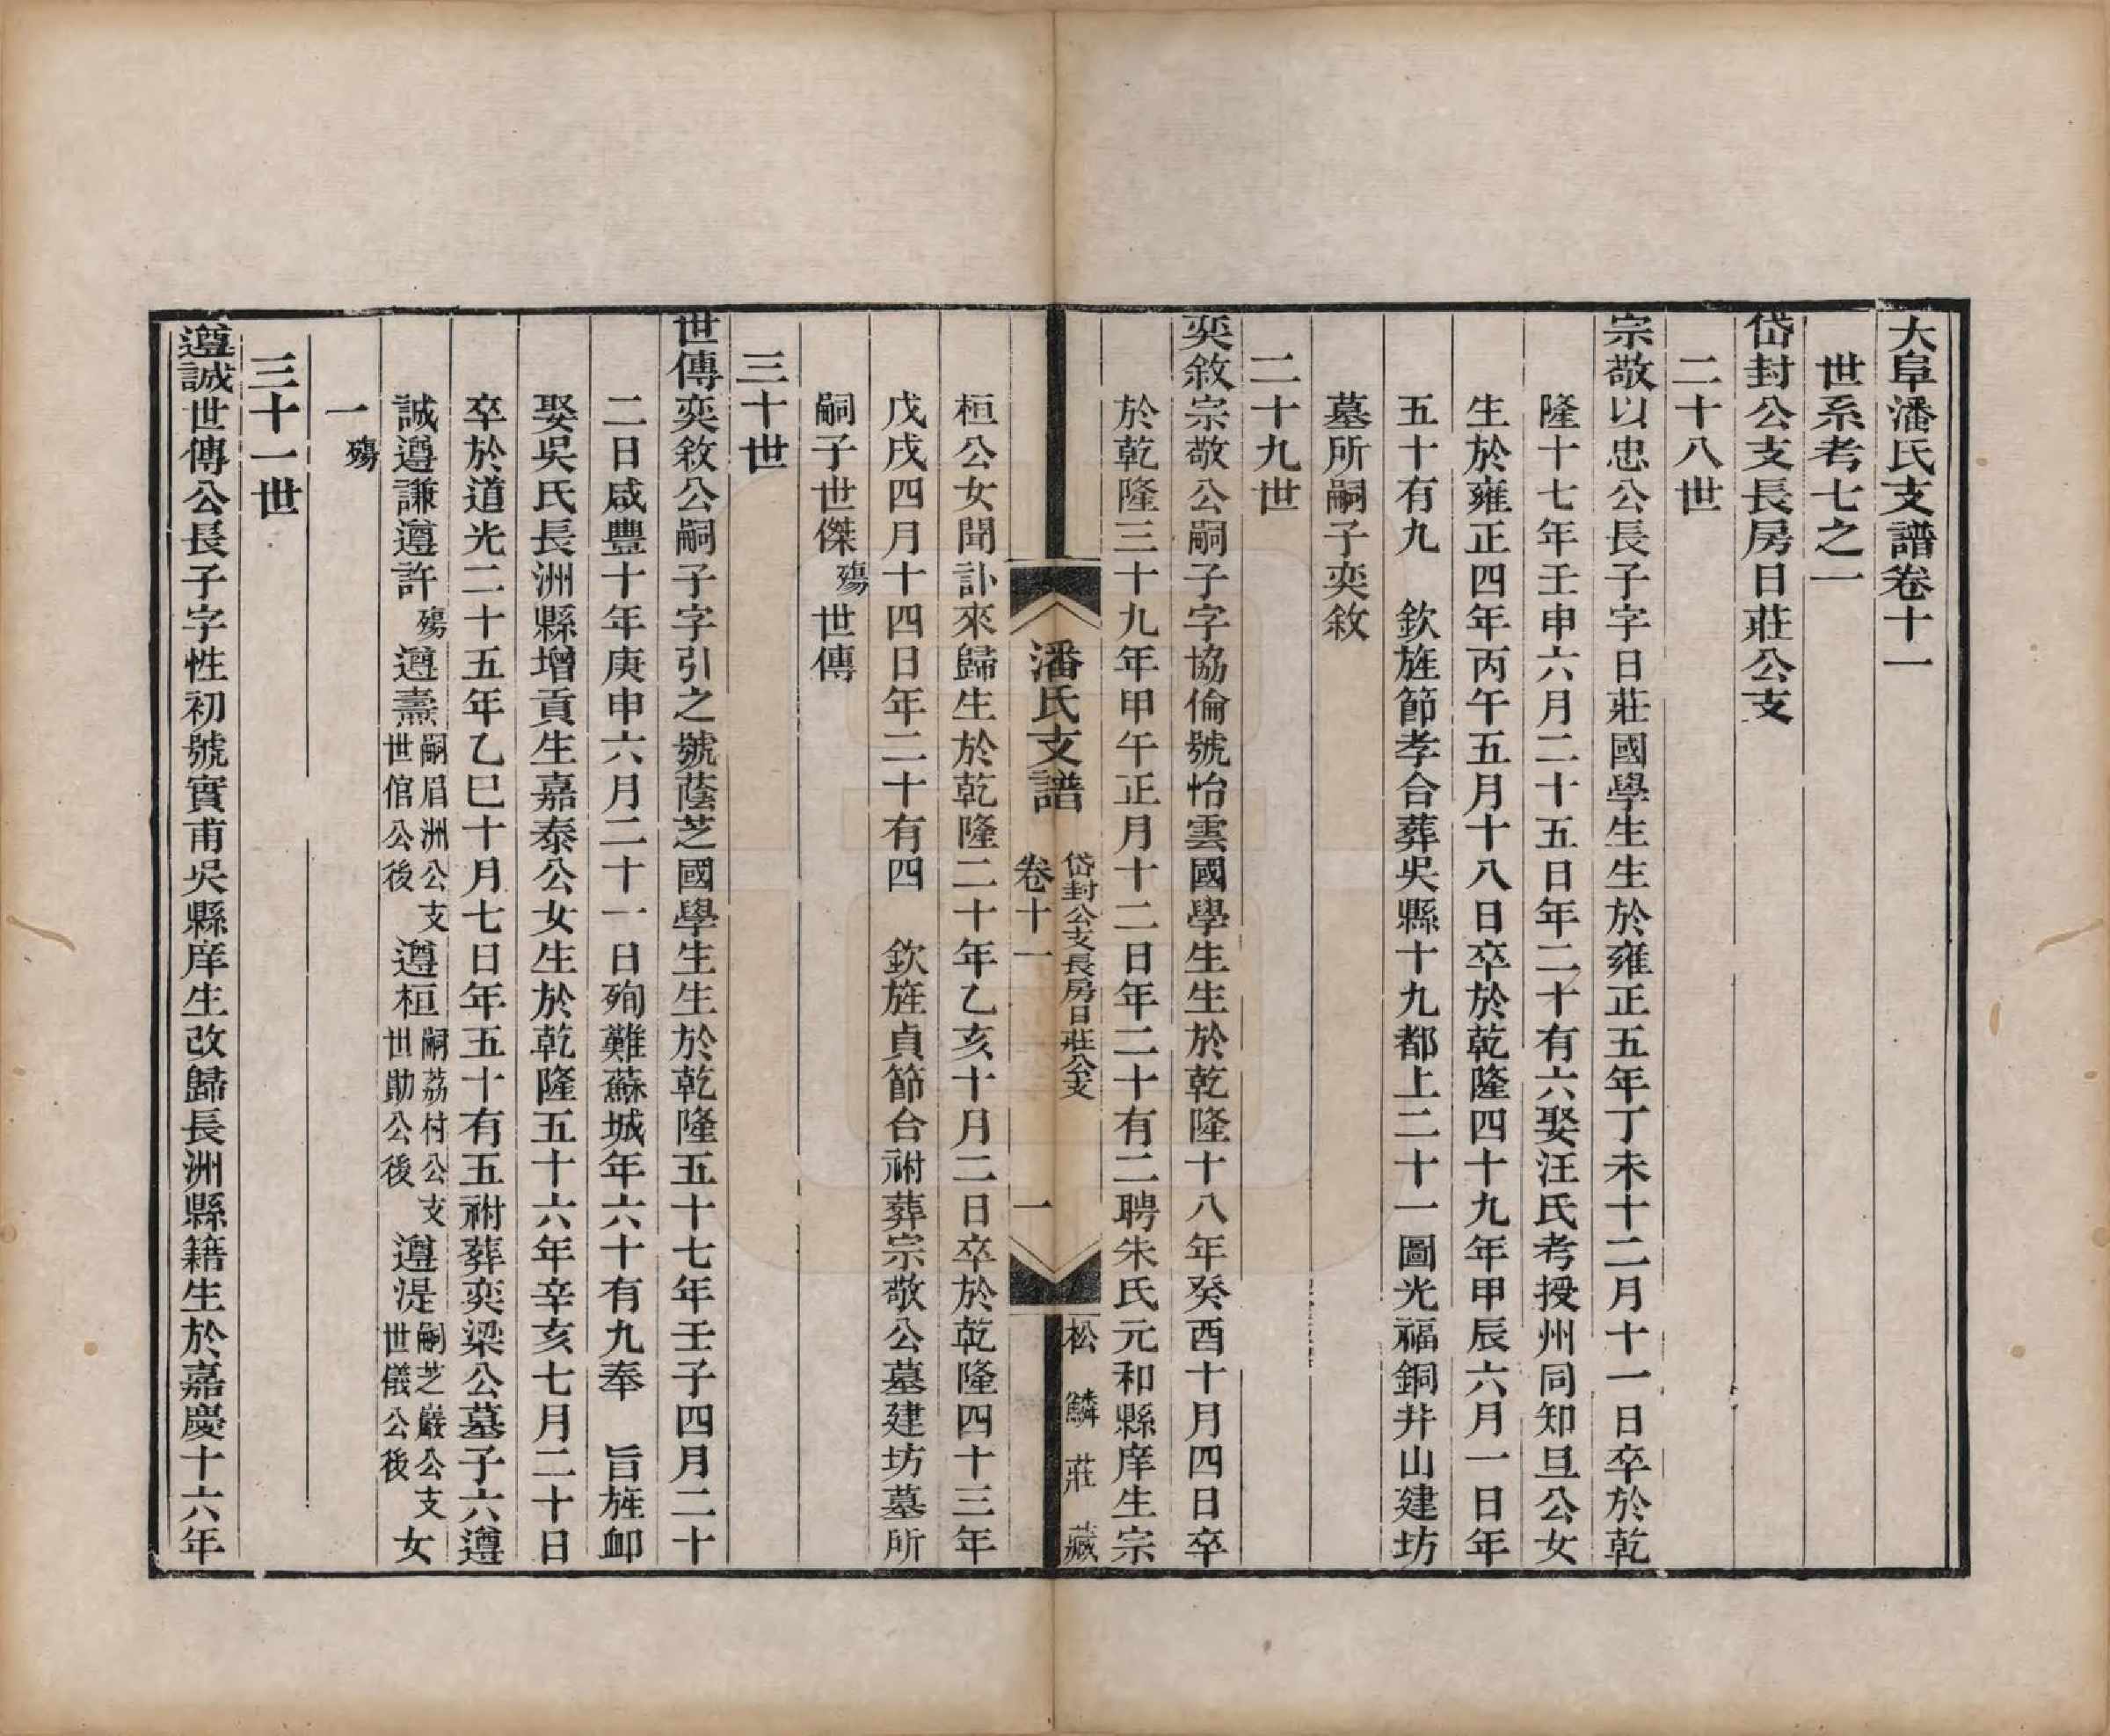 大阜潘氏支譜卷十一
世系考七之一
岱封公支長房日莊公支
二十八世
宗敬以忠公長子字日莊國學生生於雍正五年丁未十二月十一日卒於乾
隆十七年壬申六月二十五日年二十有六娶汪氏考授州同知旦公女
生於雍正四年丙午五月十八日卒於乾隆四十九年甲辰六月一日年
五十有九　欽旌節孝合葬吳縣十九都上二十一圖光福銅井山建坊
墓所嗣子奕敘
二十九世
奕敘宗敬公嗣子字協倫號怡雲國學生生於乾隆十八年癸酉十月四日卒
於乾隆三十九年甲午正月十二日年二十有二聘朱氏元和縣庠生宗
潘氏支譜　卷十一　岱封公支長房日莊公支　一　松鱗莊藏
桓公女聞訃來歸生於乾隆二十年乙亥十月二日卒於乾隆四十三年
戊戌四月十四日年二十有四　欽旌貞節台祔葬宗敬公墓建坊墓所
嗣子世傑殤世傳
三十世
世傳奕敘公嗣子字引之號蔭芝國學生生於乾隆五十七年壬子四月二十
二日咸豐十年庚申六月二十一日殉難蘇城年六十有九奉　旨旌卹
娶吳氏長洲縣增貢生嘉泰公女生於乾隆五十六年辛亥七月二十日
卒於道光二十五年乙巳十月七日年五十有五祔葬奕梁公墓子六遵
誠遵謙遵許殤遵燾嗣眉洲公支世倌公後遵桓嗣荔村公支世勛公後遵湜嗣芝巖公支世儀公後女
一殤
三十一世
遵誠世傳公長子字性初號實甫吳縣庠生改歸長洲縣籍生於嘉慶十六年